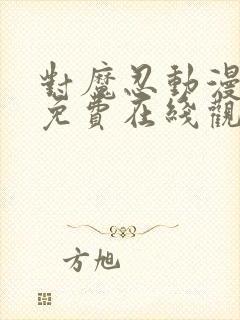 對魔忍動漫
免費在綫觀
方旭